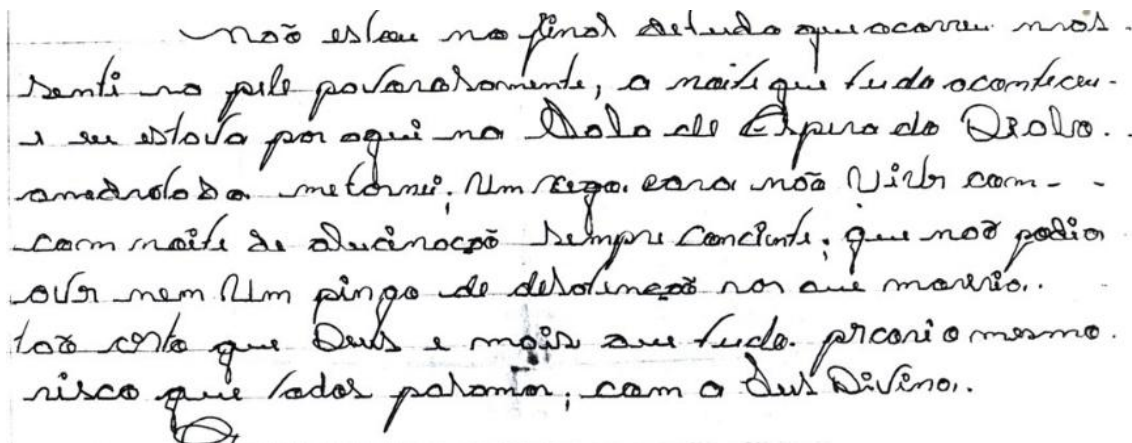 não estou no final detudo que ocorreu mas.
senti na pele pavorosomente, a noite que tudo aconteceu-
e eu estava por aqui na Sala de Espera do Diabo..
amedrotado metornei; Um cego. para não Vivir com--
com noite de alucinação sempre conciente; que não podia
ovir nem Um pingo de desatinção mas que morerio..
tão certo que Deus e mais que tudo. mesmo.
risco que todos pasamos; com a Deus Divino..